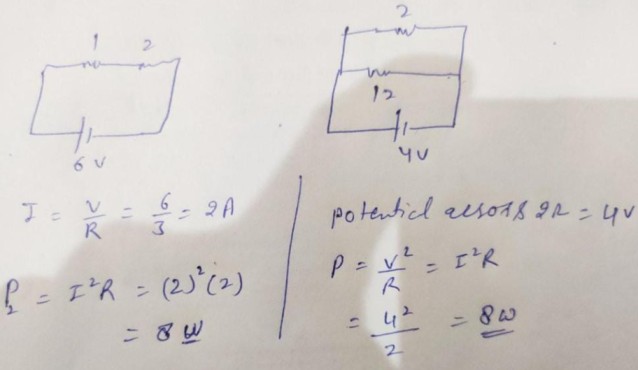 1 2
6 V
2
12
4V
I = V/R = 6/3 = 2A
P2 = I²R = (2)²(2)
= 8 W
potential across 2Ω = 4V
P = V²/R = I²R
= 4²/2 = 8W